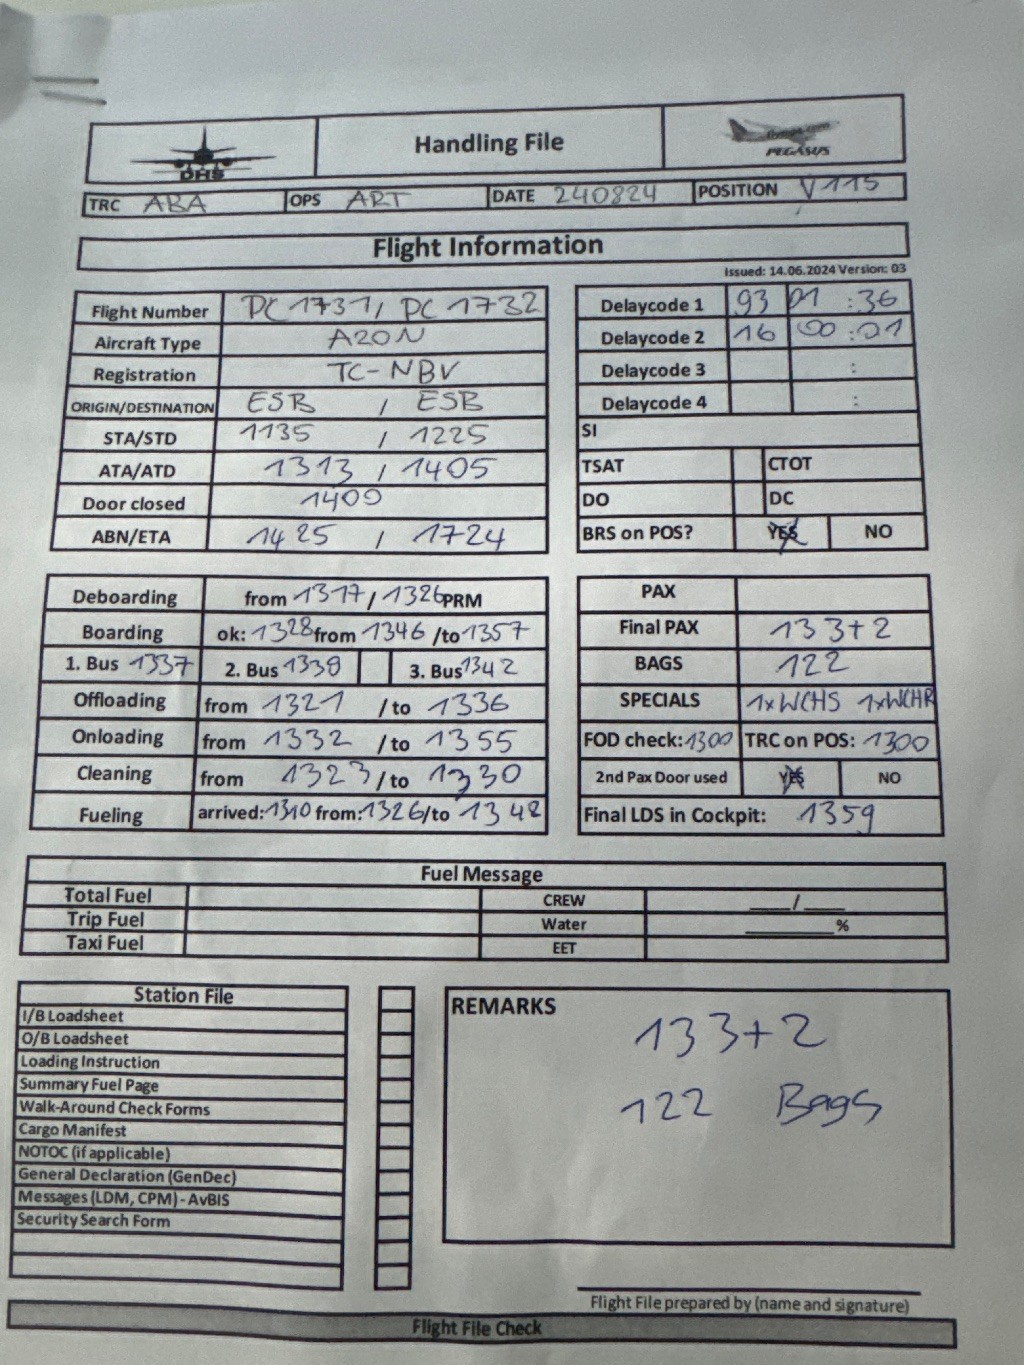 DHS Handling File flypgs.com PEGASUS
TRC ABA OPS ART DATE 240824 POSITION V115
Flight Information
Issued: 14.06.2024 Version: 03
Flight Number PC 1731/ PC 1732
Aircraft Type A20N
Registration TC-NBV
ORIGIN/DESTINATION ESB / ESB
STA/STD 1135 / 1225
ATA/ATD 1313 / 1405
Door closed 1400
ABN/ETA 1425 / 1724
Delaycode 1 93 01 :36
Delaycode 2 16 00 :01
Delaycode 3 :
Delaycode 4 :
SI
TSAT CTOT
DO DC
BRS on POS? YES NO
Deboarding from 1317/ 1326 PRM
Boarding ok: 1328 from 1346 /to 1357
1. Bus 1337 2. Bus 1339 3. Bus 1342
Offloading from 1321 /to 1336
Onloading from 1332 /to 1355
Cleaning from 1323 /to 1330
Fueling arrived: 1310 from: 1326 /to 1342
PAX
Final PAX 133+2
BAGS 122
SPECIALS 1xWCHS 1xWCHR
FOD check: 1300 TRC on POS: 1300
2nd Pax Door used YES NO
Final LDS in Cockpit: 1359
Fuel Message
Total Fuel CREW ___/___
Trip Fuel Water ______%
Taxi Fuel EET
Station File
I/B Loadsheet
O/B Loadsheet
Loading Instruction
Summary Fuel Page
Walk-Around Check Forms
Cargo Manifest
NOTOC (if applicable)
General Declaration (GenDec)
Messages (LDM, CPM) - AvBIS
Security Search Form
REMARKS
133+2
122 Bags
Flight File prepared by (name and signature)
Flight File Check